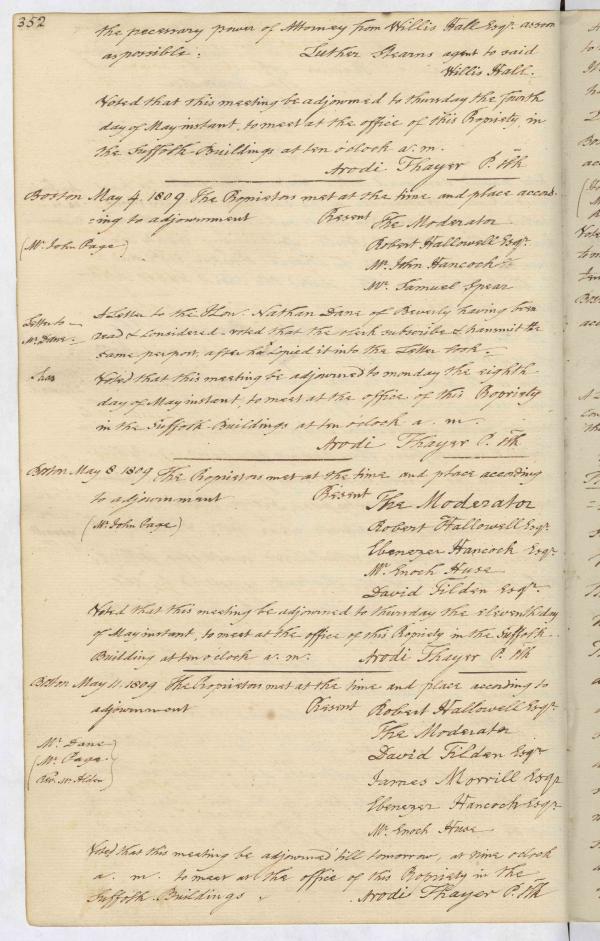 352
the necessary power of Attorney from Willis Hall Esqr. as soon
as possible. Luther Stearns agent to said
Willis Hall.
Voted that this meeting be adjourned to thursday the fourth
day of May instant, to meet at the office of this Propriety, in
the Suffolk Buildings at ten o'clock a. m.
Arodi Thayer P. Clk
Boston May 4. 1809 The Proprietors met at the time and place accord-
=ing to adjournment Present The Moderator
(Mr. John Page) Robert Hallowell Esqr.
Mr. John Hancock
Mr. Samuel Spear
Letter to A Letter to the Hon. Nathan Dane of Beverly having been
Mr. Dane. read & considered - voted that the clerk subscribe & transmit the
same per post, after he copied it into the Letter book.
Voted that this meeting be adjourned to monday the eighth
day of May instant to meet at the office of this Propriety
in the Suffolk Buildings at ten o'clock a. m.
Arodi Thayer P. Clk
Boston May 8 1809 The Propietors met at the time and place according
to adjournment Present The Moderator
(Mr. John Page) Robert Hallowell Esqr.
Ebenezer Hancock Esqr.
Mr. Enoch Huse
David Tilden Esqr.
Voted that this meeting be adjourned to thursday the eleventh day
of May instant, to meet at the office of this Propriety in the Suffolk
Building at ten o'clock a. m. Arodi Thayer P. Clk
Boston May 11. 1809 The Propietors met at the time and place according to
adjournment Present Robert Hallowell Esqr.
The Moderator
Mr. Dane David Tilden Esqr
Mr. Page James Morrill Esqr
Revd. Mr. Alden Ebenezer Hancock Esqr
Mr. Enoch Huse
Voted that this meeting be adjourned till tomorrow, at nine o'clock
a. m. to meet at the office of this Propriety in the
Suffolk Buildings. Arodi Thayer P. Clk